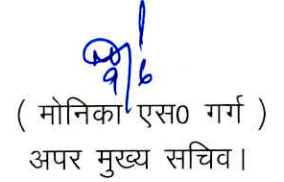 9/6
( मोनिका एस0 गर्ग )
अपर मुख्य सचिव।